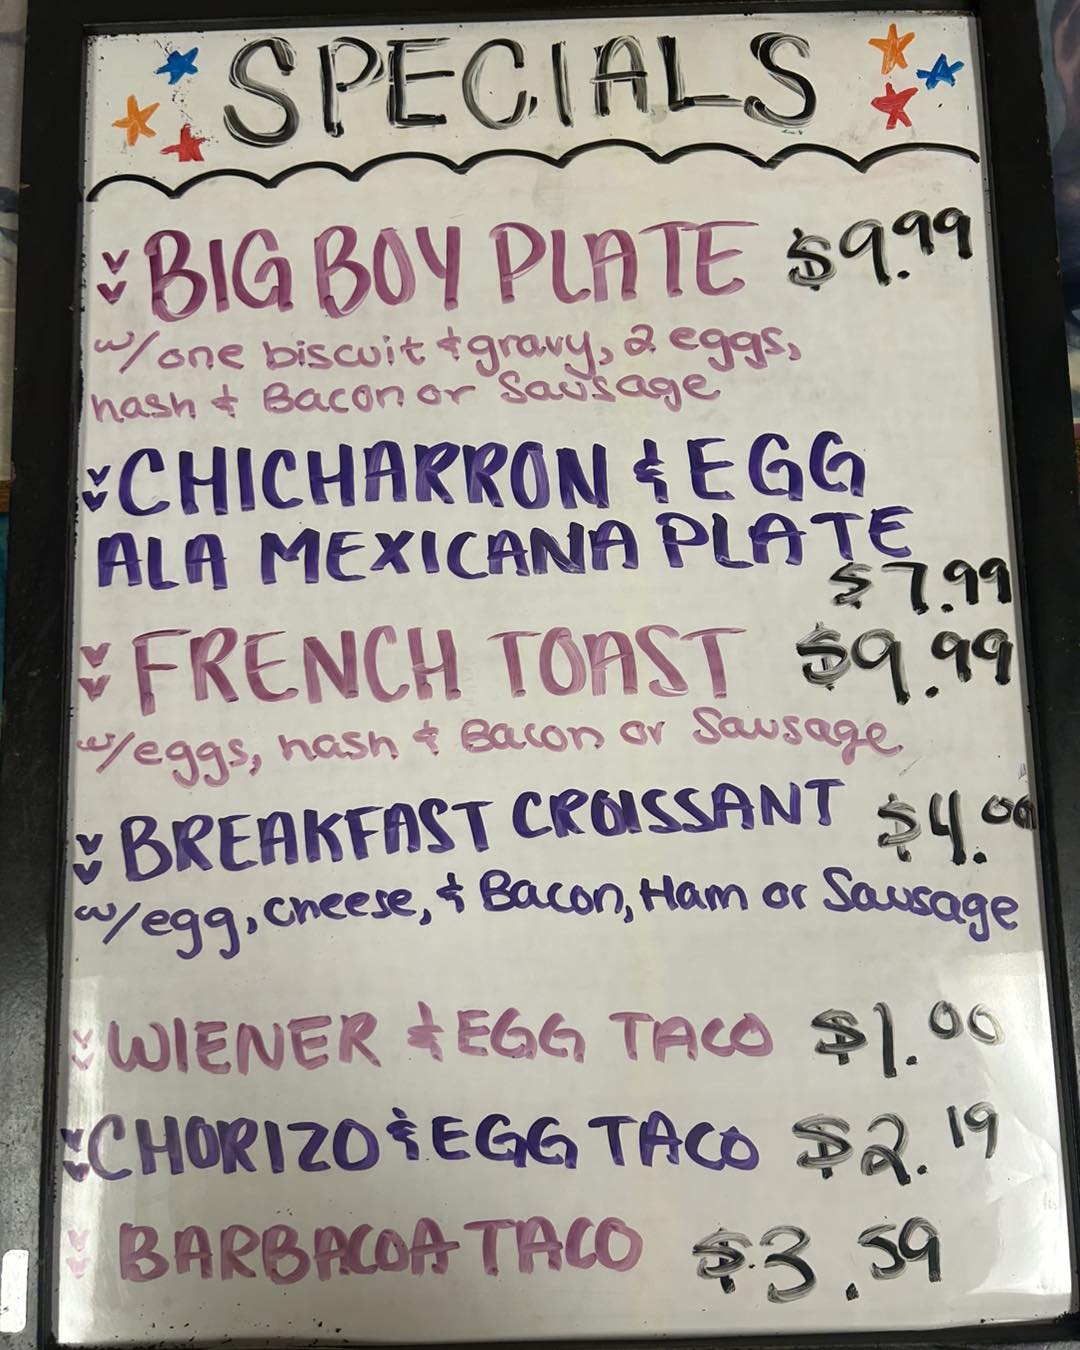 SPECIALS
BIG BOY PLATE $9.99
w/one biscuit & gravy, 2 eggs,
hash & Bacon or Sausage
CHICHARRON & EGG
ALA MEXICANA PLATE
$7.99
FRENCH TOAST $9.99
w/eggs, hash & Bacon or Sausage
BREAKFAST CROISSANT $4.00
w/egg, cheese, & Bacon, Ham or Sausage
WIENER & EGG TACO $1.00
CHORIZO & EGG TACO $2.19
BARBACOA TACO $3.59